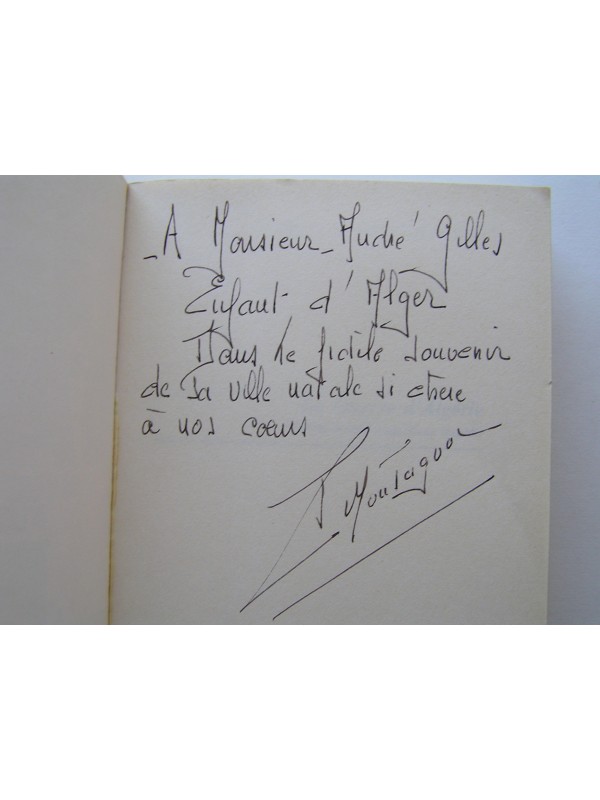 - A Monsieur - André Gilles
Enfant d'Alger
Dans le fidèle souvenir
de sa ville natale si chère
à nos coeurs